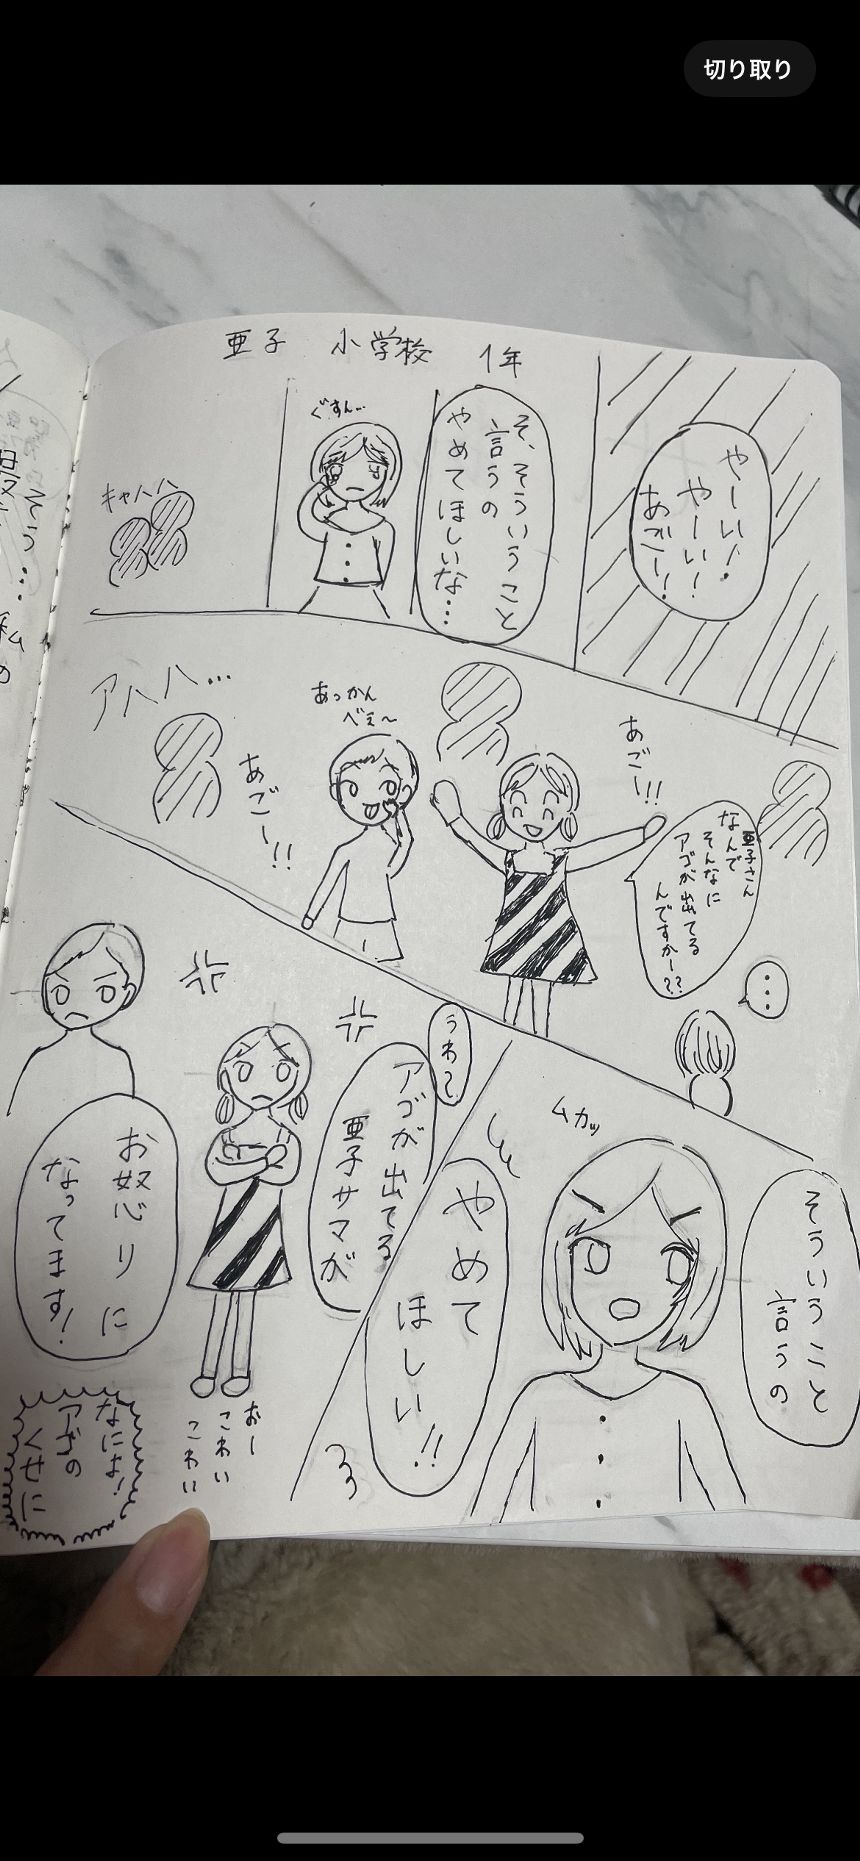 切り取り
亜子 小学校 1年
やーい!
やーい!
あごー!!
そ、そういうこと
言うの
やめてほしいな…
ぐすん…
キャハハ
あごー!!
亜子さん
なんで
そんなに
アゴが出てる
んですかー??
…
あっかん
べぇ〜
あごー!!
アハハ…
そういうこと
言うの
ムカッ
やめて
ほしい!!
うわ〜
アゴが出てる
亜子サマが
お怒りに
なってます!
おー
こわい
こわい
なによ!
アゴの
くせに
そう…
私の